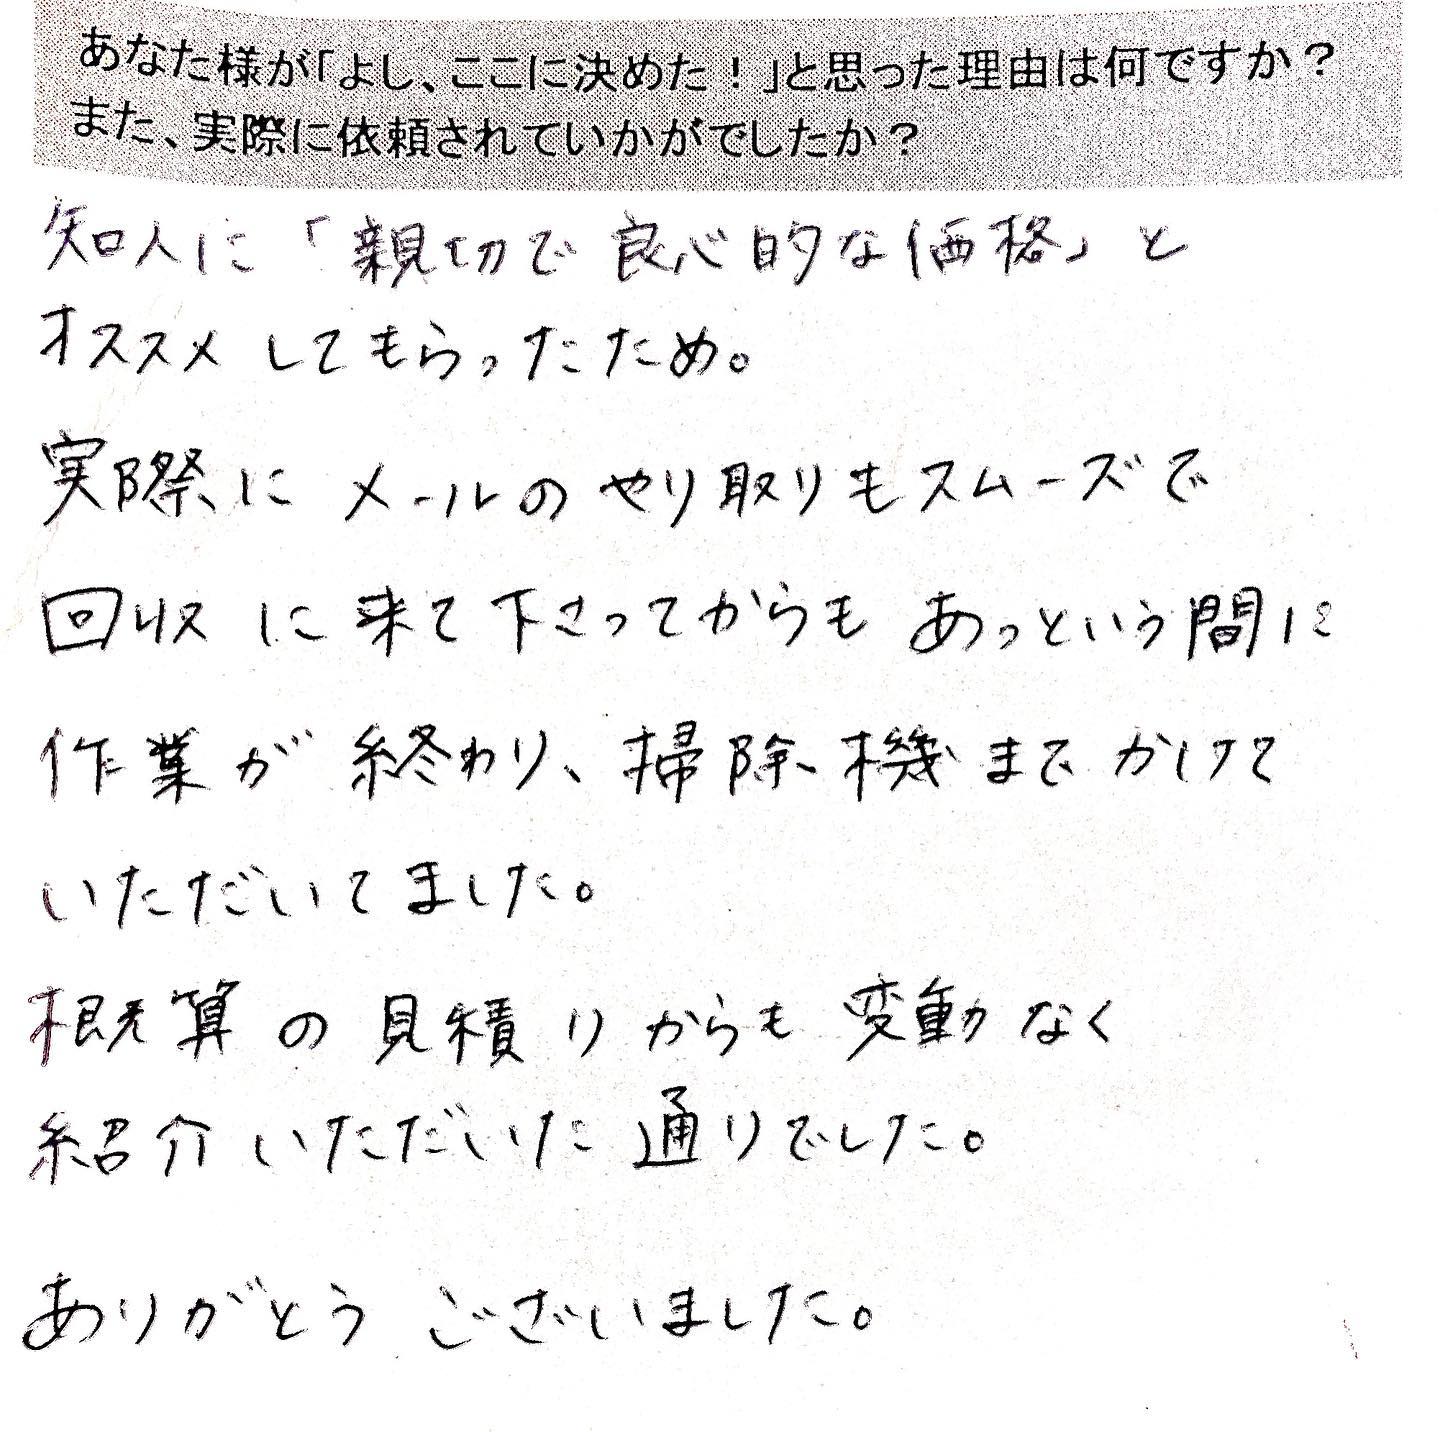 あなた様が「よし、ここに決めた！」と思った理由は何ですか？
また、実際に依頼されていかがでしたか？
知人に「親切で良心的な価格」と
オススメしてもらったため。
実際にメールのやり取りもスムーズで
回収に来て下さってからもあっという間に
作業が終わり、掃除機までかけて
いただいてました。
概算の見積りからも変動なく
紹介いただいた通りでした。
ありがとうございました。